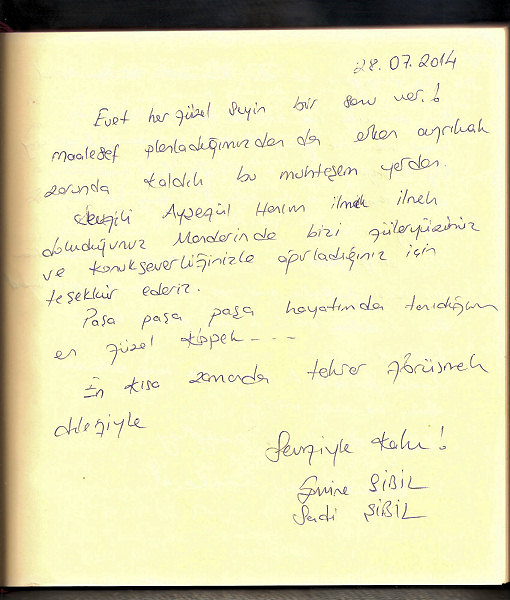 28.07.2014
Evet her güzel şeyin bir sonu var!
maalesef planladığımızdan da erken ayrılmak
zorunda kaldık bu muhteşem yerden.
Sevgili Ayşegül Hanım ilmek ilmek
dokuduğunuz Manderin de bizi güleryüzünüz
ve konukseverliğinizle ağırladığınız için
teşekkür ederiz.
Paşa paşa paşa hayatımda tanıdığım
en güzel köpek - - -
En kısa zamanda tekrar görüşmek
dileğiyle
Sevgiyle Kalın!
Emine SİBİL
Sadi SİBİL